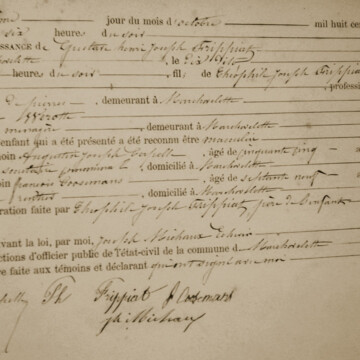 jour du mois d'octobre mil huit cen
six heure du soir
SSANCE de Gustave henri Joseph Frippiat
heure du soir fil de Théophile Joseph Frippiat
professi
de pierres demeurant à Marchovelette
ménagère demeurant à Marchovelette
enfant qui a été présenté a été reconnu être masculin
oin Augustin Joseph âgé de cinquante cinq
domicilié à Marchovelette
oin françois Goosemans âgé de Septante neuf
domicilié à Marchovelette
ration faite par Théophile Joseph Frippiat, père de l'enfant
vant la loi, par moi, Joseph Michaux
ctions d'officier public de l'état-civil de la commune de Marchovelette
re faite aux témoins et déclarant qui ont signé avec moi
Th Frippiat J Goosemans
Michaux